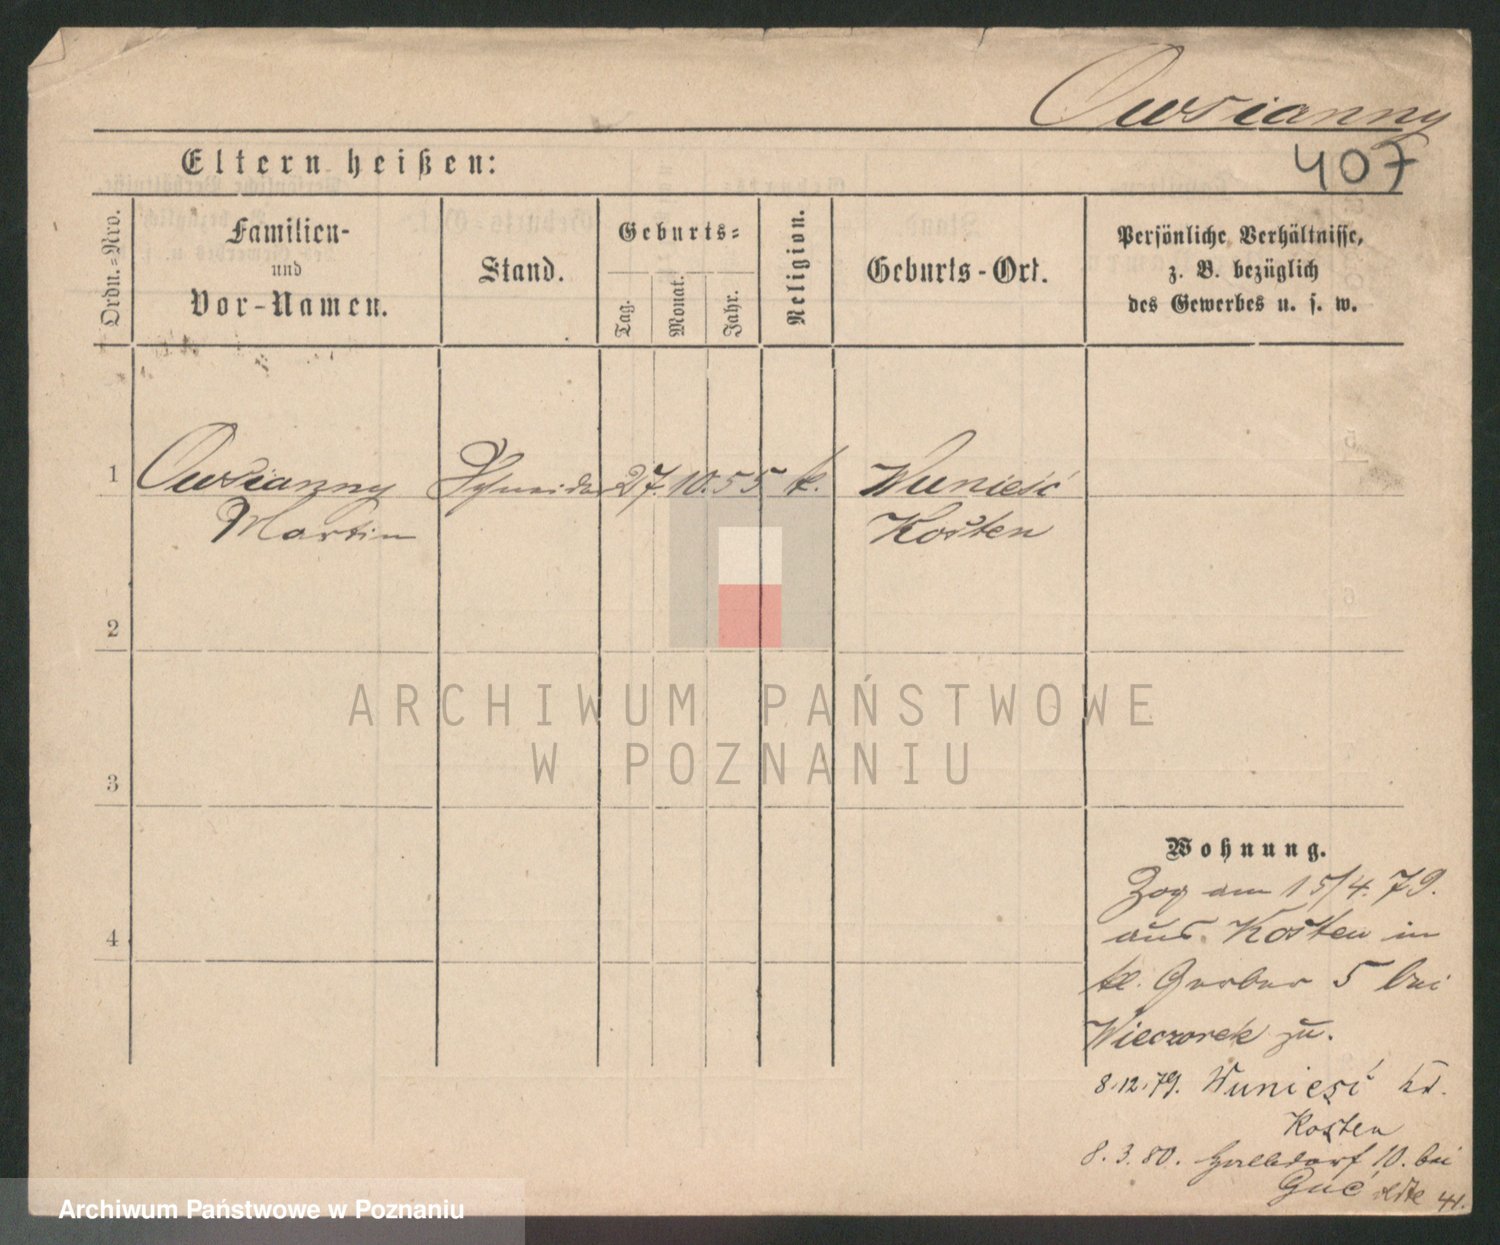 Owsianny
407
Eltern heißen:
Ordn.-Nro.
Familien-
und
Vor-Namen.
Stand.
Geburts-
Tag.
Monat.
Jahr.
Religion.
Geburts-Ort.
Persönliche Verhältnisse,
z. B. bezüglich
des Gewerbes u. s. w.
1
Owsianny Schneider 27. 10. 55 k. Wunieść
Martin Kosten
2
3
4
Wohnung.
Zog am 15/4. 79.
aus Kosten in
kl. Gerber 5 bei
Wieczorek zu.
8.12.79. Wunieść
Kosten
8.3.80. Halbdorf 10. bei
ARCHIWUM PAŃSTWOWE
W POZNANIU
Archiwum Państwowe w Poznaniu